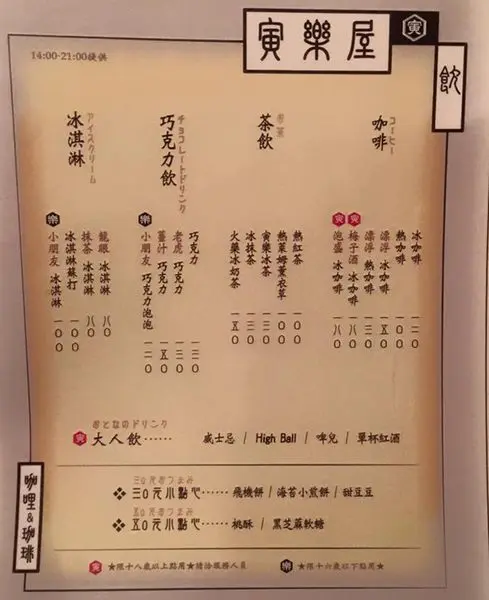 寅樂屋
寅
飲
14:00-21:00提供
コーヒー
咖啡
冰咖啡 一二〇
熱咖啡 一〇〇
漂浮 冰咖啡 一五〇
漂浮 熱咖啡 一三〇
寅 梅子酒 冰咖啡 一八〇
寅 泡盛 冰咖啡 一八〇
お茶
茶飲
熱紅茶 一〇〇
熱茱姆薰衣草 一〇〇
寅樂冰茶 一三〇
冰抹茶 一三〇
火藥冰奶茶 一五〇
チョコレートドリンク
巧克力飲
巧克力 一三〇
老虎 巧克力 一三〇
薑汁 巧克力 一五〇
樂 小朋友 巧克力泡泡 一二〇
アイスクリーム
冰淇淋
龍眼 冰淇淋 八〇
抹茶 冰淇淋 八〇
冰淇淋蘇打 一〇〇
樂 小朋友 冰淇淋 一〇〇
おとなのドリンク
寅 大人飲⋯⋯ 威士忌 / High Ball / 啤兒 / 單杯紅酒
三〇元おつまみ
❖ 三〇元小點心⋯⋯ 飛機餅 / 海苔小煎餅 / 甜豆豆
五〇元おつまみ
❖ 五〇元小點心⋯⋯ 桃酥 / 黑芝蔴軟糖
咖哩&珈琲
寅 ★限十八歲以上點用★請洽服務人員
樂 ★限十六歲以下點用★